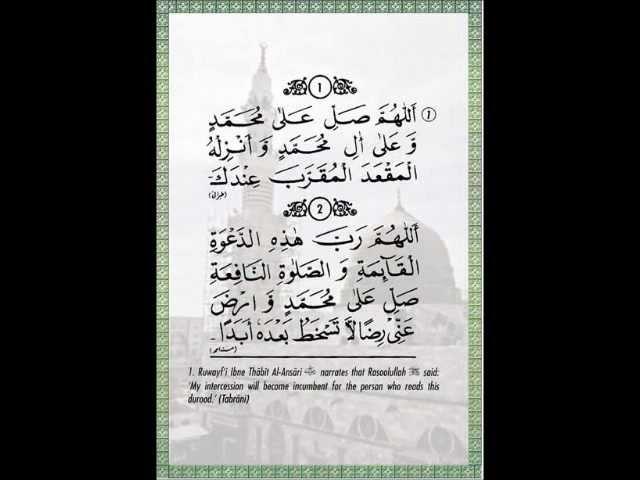 1
اَللّٰهُمَّ صَلِّ عَلٰى مُحَمَّدٍ ①
وَّ عَلٰى اٰلِ مُحَمَّدٍ وَ اَنْزِلْهُ
الْمَقْعَدَ الْمُقَرَّبَ عِنْدَكَ۔
(طبرانی)
2
اَللّٰهُمَّ رَبَّ هٰذِهِ الدَّعْوَةِ
الْقَآئِمَةِ وَ الصَّلٰوةِ النَّافِعَةِ
صَلِّ عَلٰى مُحَمَّدٍ وَّ ارْضَ
عَنِّىْ رِضًا لَّا تَسْخَطُ بَعْدَهٗ اَبَدًا۔
(مسند احمد)
1. Ruwayf'i Ibne Thābit Al-Ansāri narrates that Rasoolullah ﷺ said:
'My intercession will become incumbent for the person who reads this
durood.' (Tabrāni)